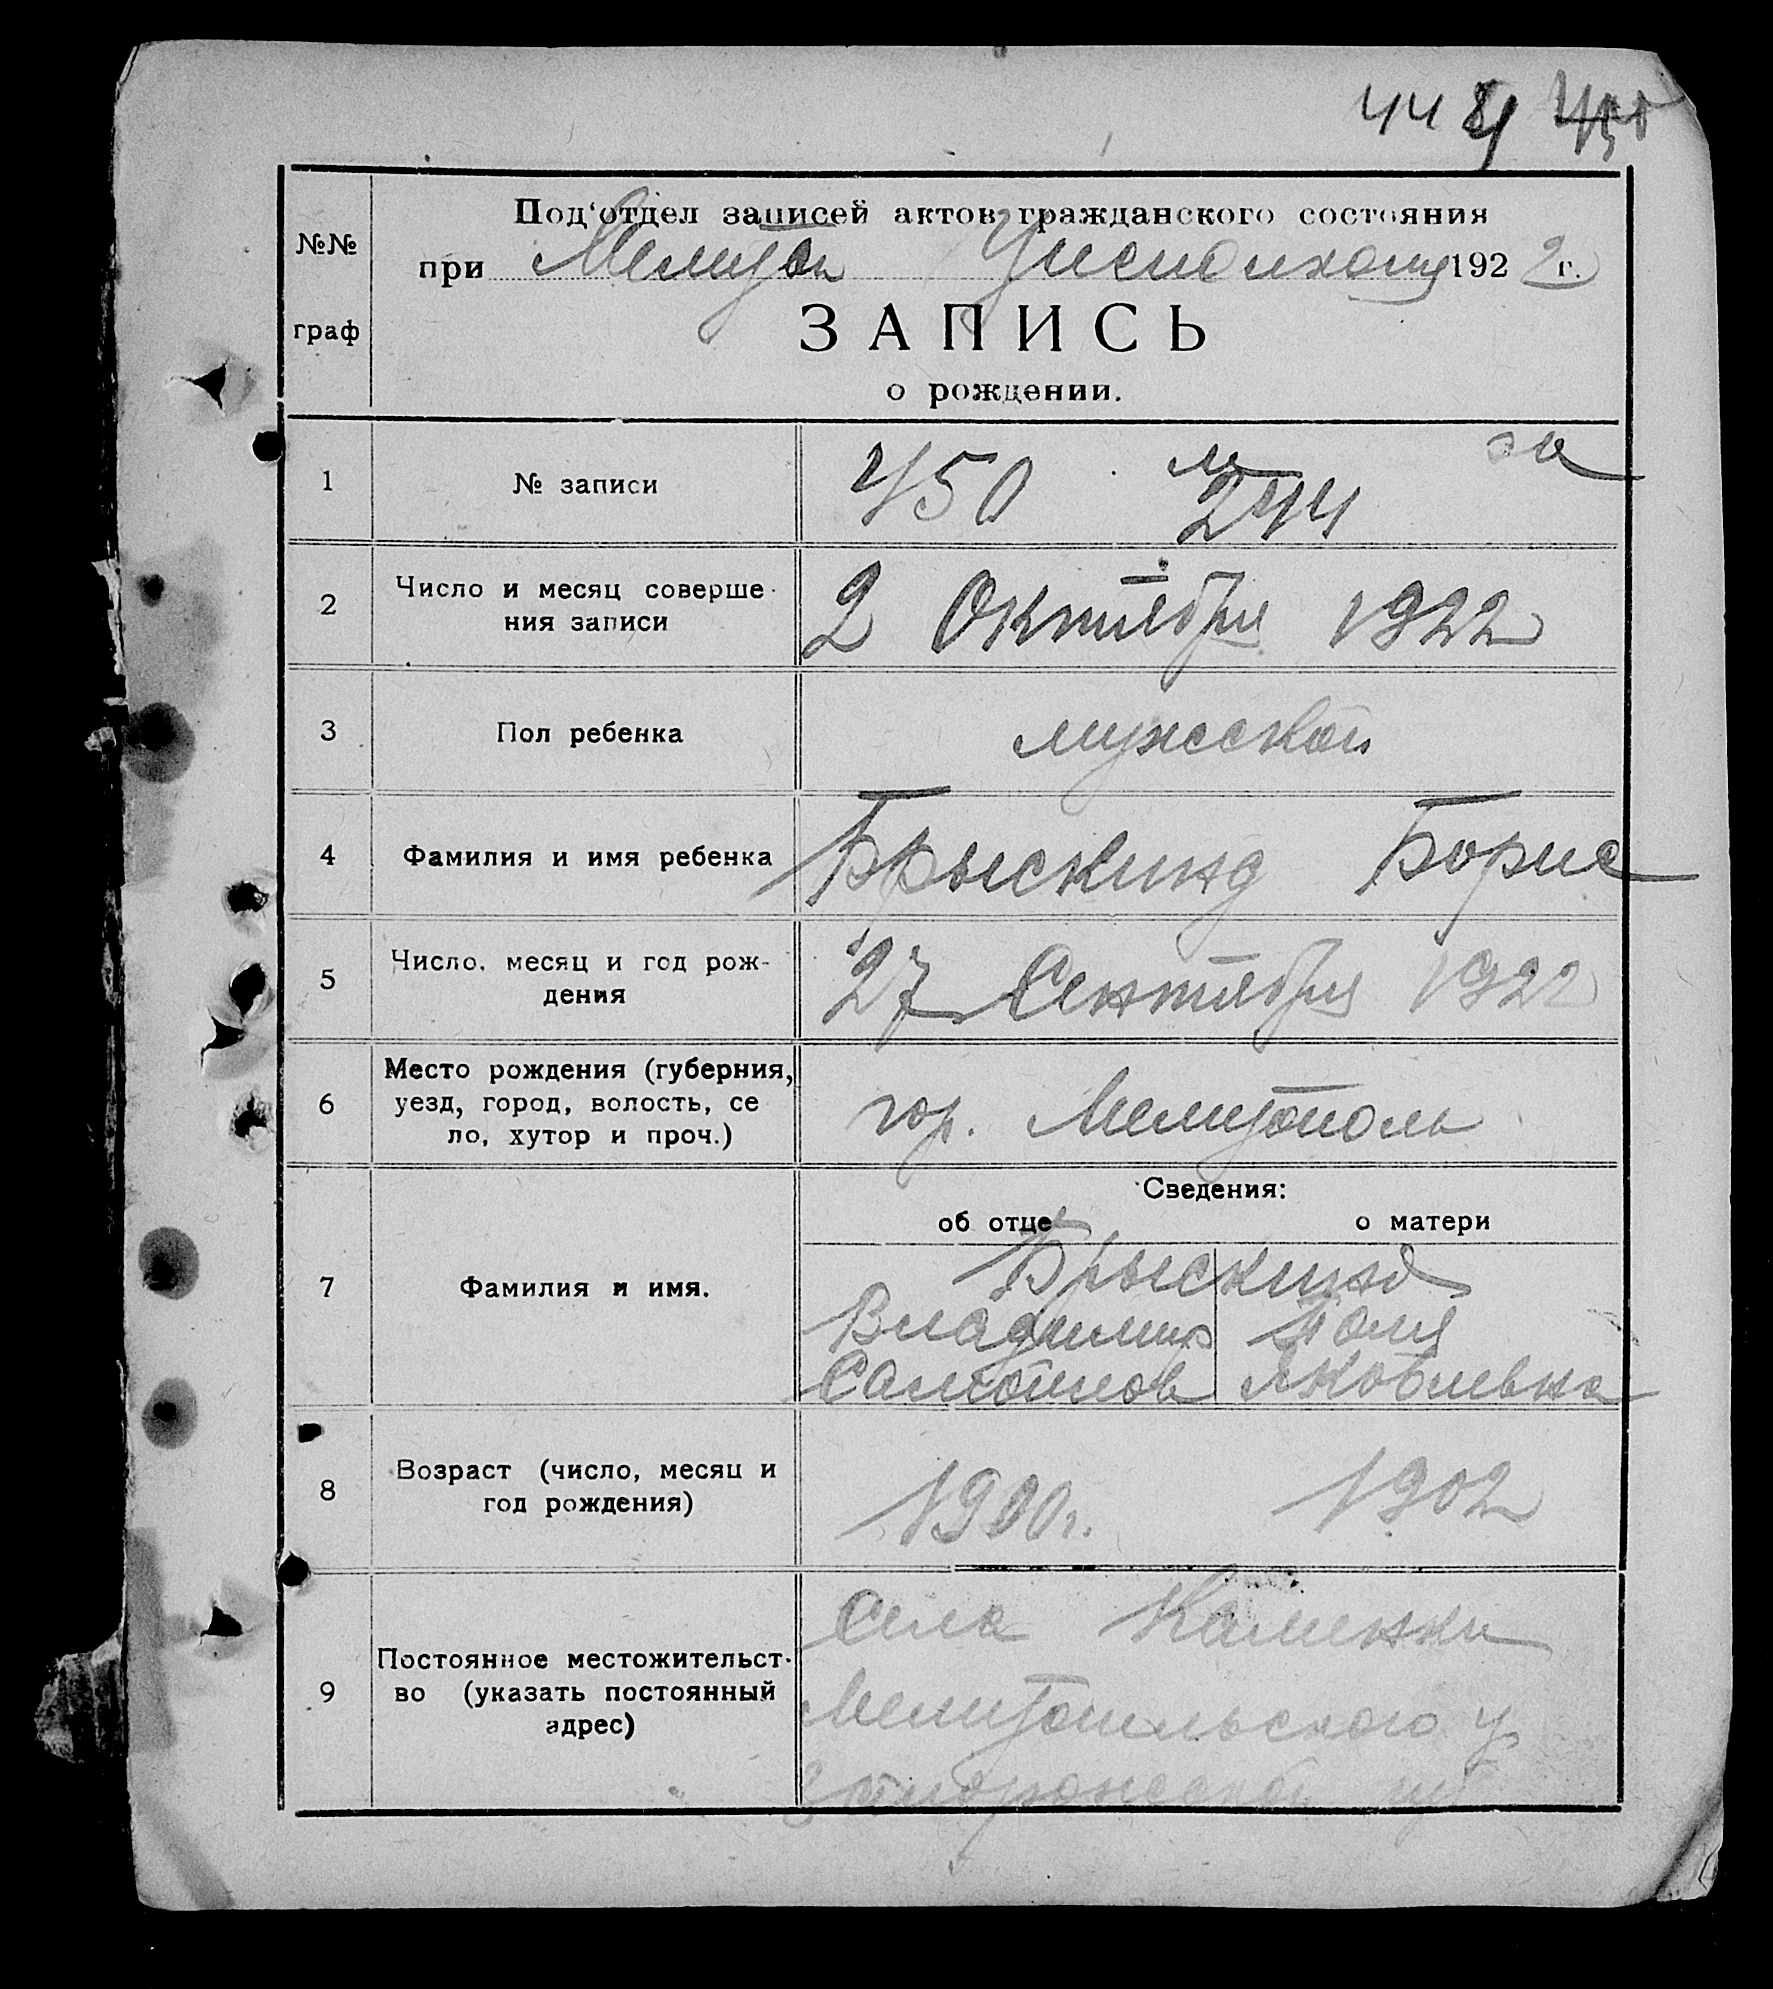 44
№№ граф
Под'отдел записей актов гражданского состояния
при Мелитоп Уисполкоме 1922 г.
ЗАПИСЬ
о рождении.
1 № записи 450 м 244 за
2 Число и месяц соверше-
ния записи 2 Октября 1922
3 Пол ребенка мужской
4 Фамилия и имя ребенка Брыскинд Борис
5 Число, месяц и год рож-
дения 27 Сентября 1922
6 Место рождения (губерния,
уезд, город, волость, се
ло, хутор и проч.) гор. Мелитополь
Сведения:
об отце о матери
7 Фамилия и имя. Брыскинд
Владимир Поля
Самойлов Яковлевна
8 Возраст (число, месяц и
год рождения) 1900 г. 1902
9 Постоянное местожительст-
во (указать постоянный
адрес) Села Каменки
Мелитопольского у
Запорожской губ